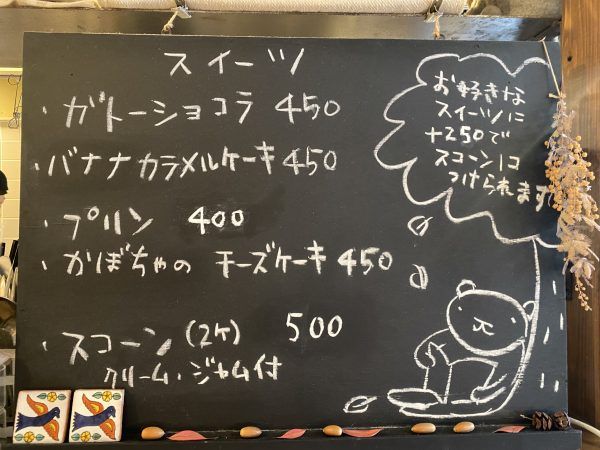 スイーツ
・ガトーショコラ 450
・バナナカラメルケーキ 450
・プリン 400
・かぼちゃの チーズケーキ 450
・スコーン(2ケ) 500
クリーム・ジャム付
お好きな
スイーツに
+250で
スコーン1コ
つけられます